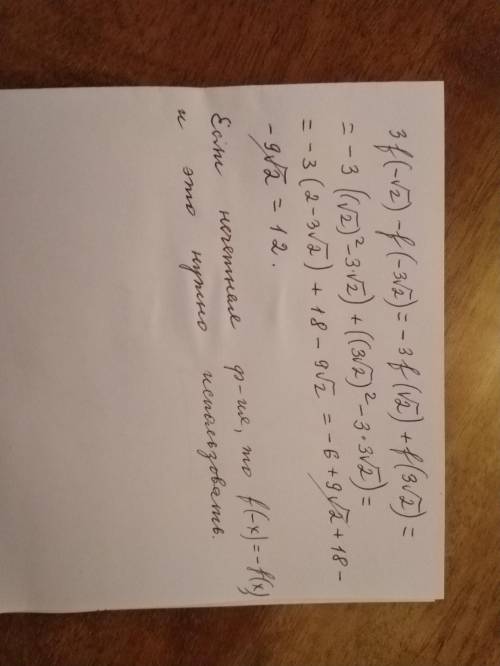 3f(-√2) - f(-3√2) = -3f(√2) + f(3√2) =
= -3((√2)² - 3√2) + ((3√2)² - 3·3√2) =
= -3(2 - 3√2) + 18 - 9√2 = -6 + 9√2 + 18 -
- 9√2 = 12.
Если нечетная ф-ия, то f(-x) = -f(x)
и это нужно использовать.